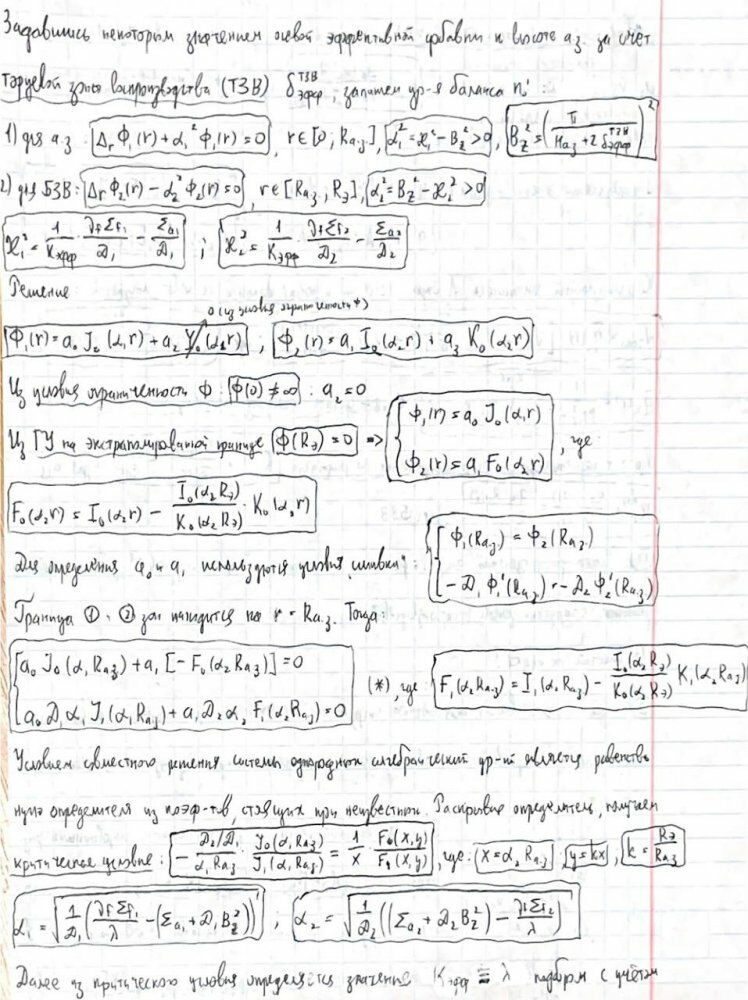 Задавшись некоторым значением осевой эффективной добавки к высоте а.з. за счёт
торцевой зоны воспроизводства (ТЗВ) δ_эфф^ТЗВ, запишем ур-я баланса n_0':
1) для а.з: Δ_r Φ_1(r) + α_1² Φ_1(r) = 0, r∈[0; R_аз], α_1² = ϰ_1² - B_z² > 0, B_z² = (π / (H_аз + 2 δ_эфф^ТЗВ))²
2) для БЗВ: Δ_r Φ_2(r) - α_2² Φ_2(r) = 0, r∈[R_аз; R_э], α_2² = B_z² - ϰ_2² > 0
ϰ_1² = 1/K_эфф · ν_f Σ_f1 / D_1 - Σ_a1 / D_1 ; ϰ_2² = 1/K_эфф · ν_f Σ_f2 / D_2 - Σ_a2 / D_2
Решение
0 (из условия ограниченности Φ)
Φ_1(r) = a_0 J_0(α_1 r) + a_2 Y_0(α_1 r) ; Φ_2(r) = a_1 I_0(α_2 r) + a_3 K_0(α_2 r)
Из условия ограниченности Φ: Φ(0) ≠ ∞ : a_2 = 0
Из ГУ на экстраполированной границе Φ(R_э) = 0 => { Φ_1(r) = a_0 J_0(α_1 r)
Φ_2(r) = a_1 F_0(α_2 r) , где
F_0(α_2 r) = I_0(α_2 r) - I_0(α_2 R_э) / K_0(α_2 R_э) · K_0(α_2 r)
Для определения a_0 и a_1 используются условия "сшивки": { Φ_1(R_аз) = Φ_2(R_аз)
-D_1 Φ_1'(R_аз) = -D_2 Φ_2'(R_аз)
Граница ① и ② зон находится на r = R_аз. Тогда:
{ a_0 J_0(α_1 R_аз) + a_1 [-F_0(α_2 R_аз)] = 0
a_0 D_1 α_1 J_1(α_1 R_аз) + a_1 D_2 α_2 F_1(α_2 R_аз) = 0 (*), где: F_1(α_2 R_аз) = I_1(α_2 R_аз) - I_0(α_2 R_э) / K_0(α_2 R_э) K_1(α_2 R_аз)
Условием совместного решения системы однородных алгебраических ур-ий является равенство
нулю определителя из коэф-тов, стоящих при неизвестных. Раскрывая определитель, получаем
критическое условие: - D_2/D_1 / α_1 R_аз · J_0(α_1 R_аз) / J_1(α_1 R_аз) = 1/x · F_0(x,y) / F_1(x,y), где: x = α_2 R_аз, y = kx, k = R_э / R_аз
α_1 = √(1/D_1 (ν_f Σ_f1 / λ - (Σ_a1 + D_1 B_z²))) ; α_2 = √(1/D_2 ((Σ_a2 + D_2 B_z²) - ν_f Σ_f2 / λ))
Далее из критического условия определяется значение K_эфф ≡ λ подбором с учётом